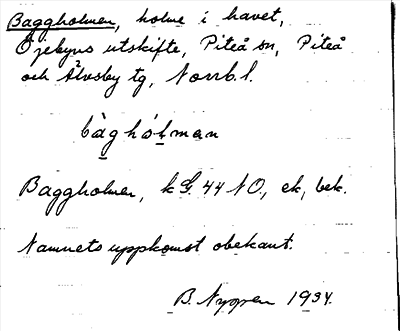 Baggholmen, holme i havet,
Öjebyns utskifte, Piteå sn, Piteå
och Älvsby tg, Norrb. l.
bàghólman
Baggholmen, k G. 44 NO, ek, bek.
Namnets uppkomst obekant.
B. Nygren 1934.